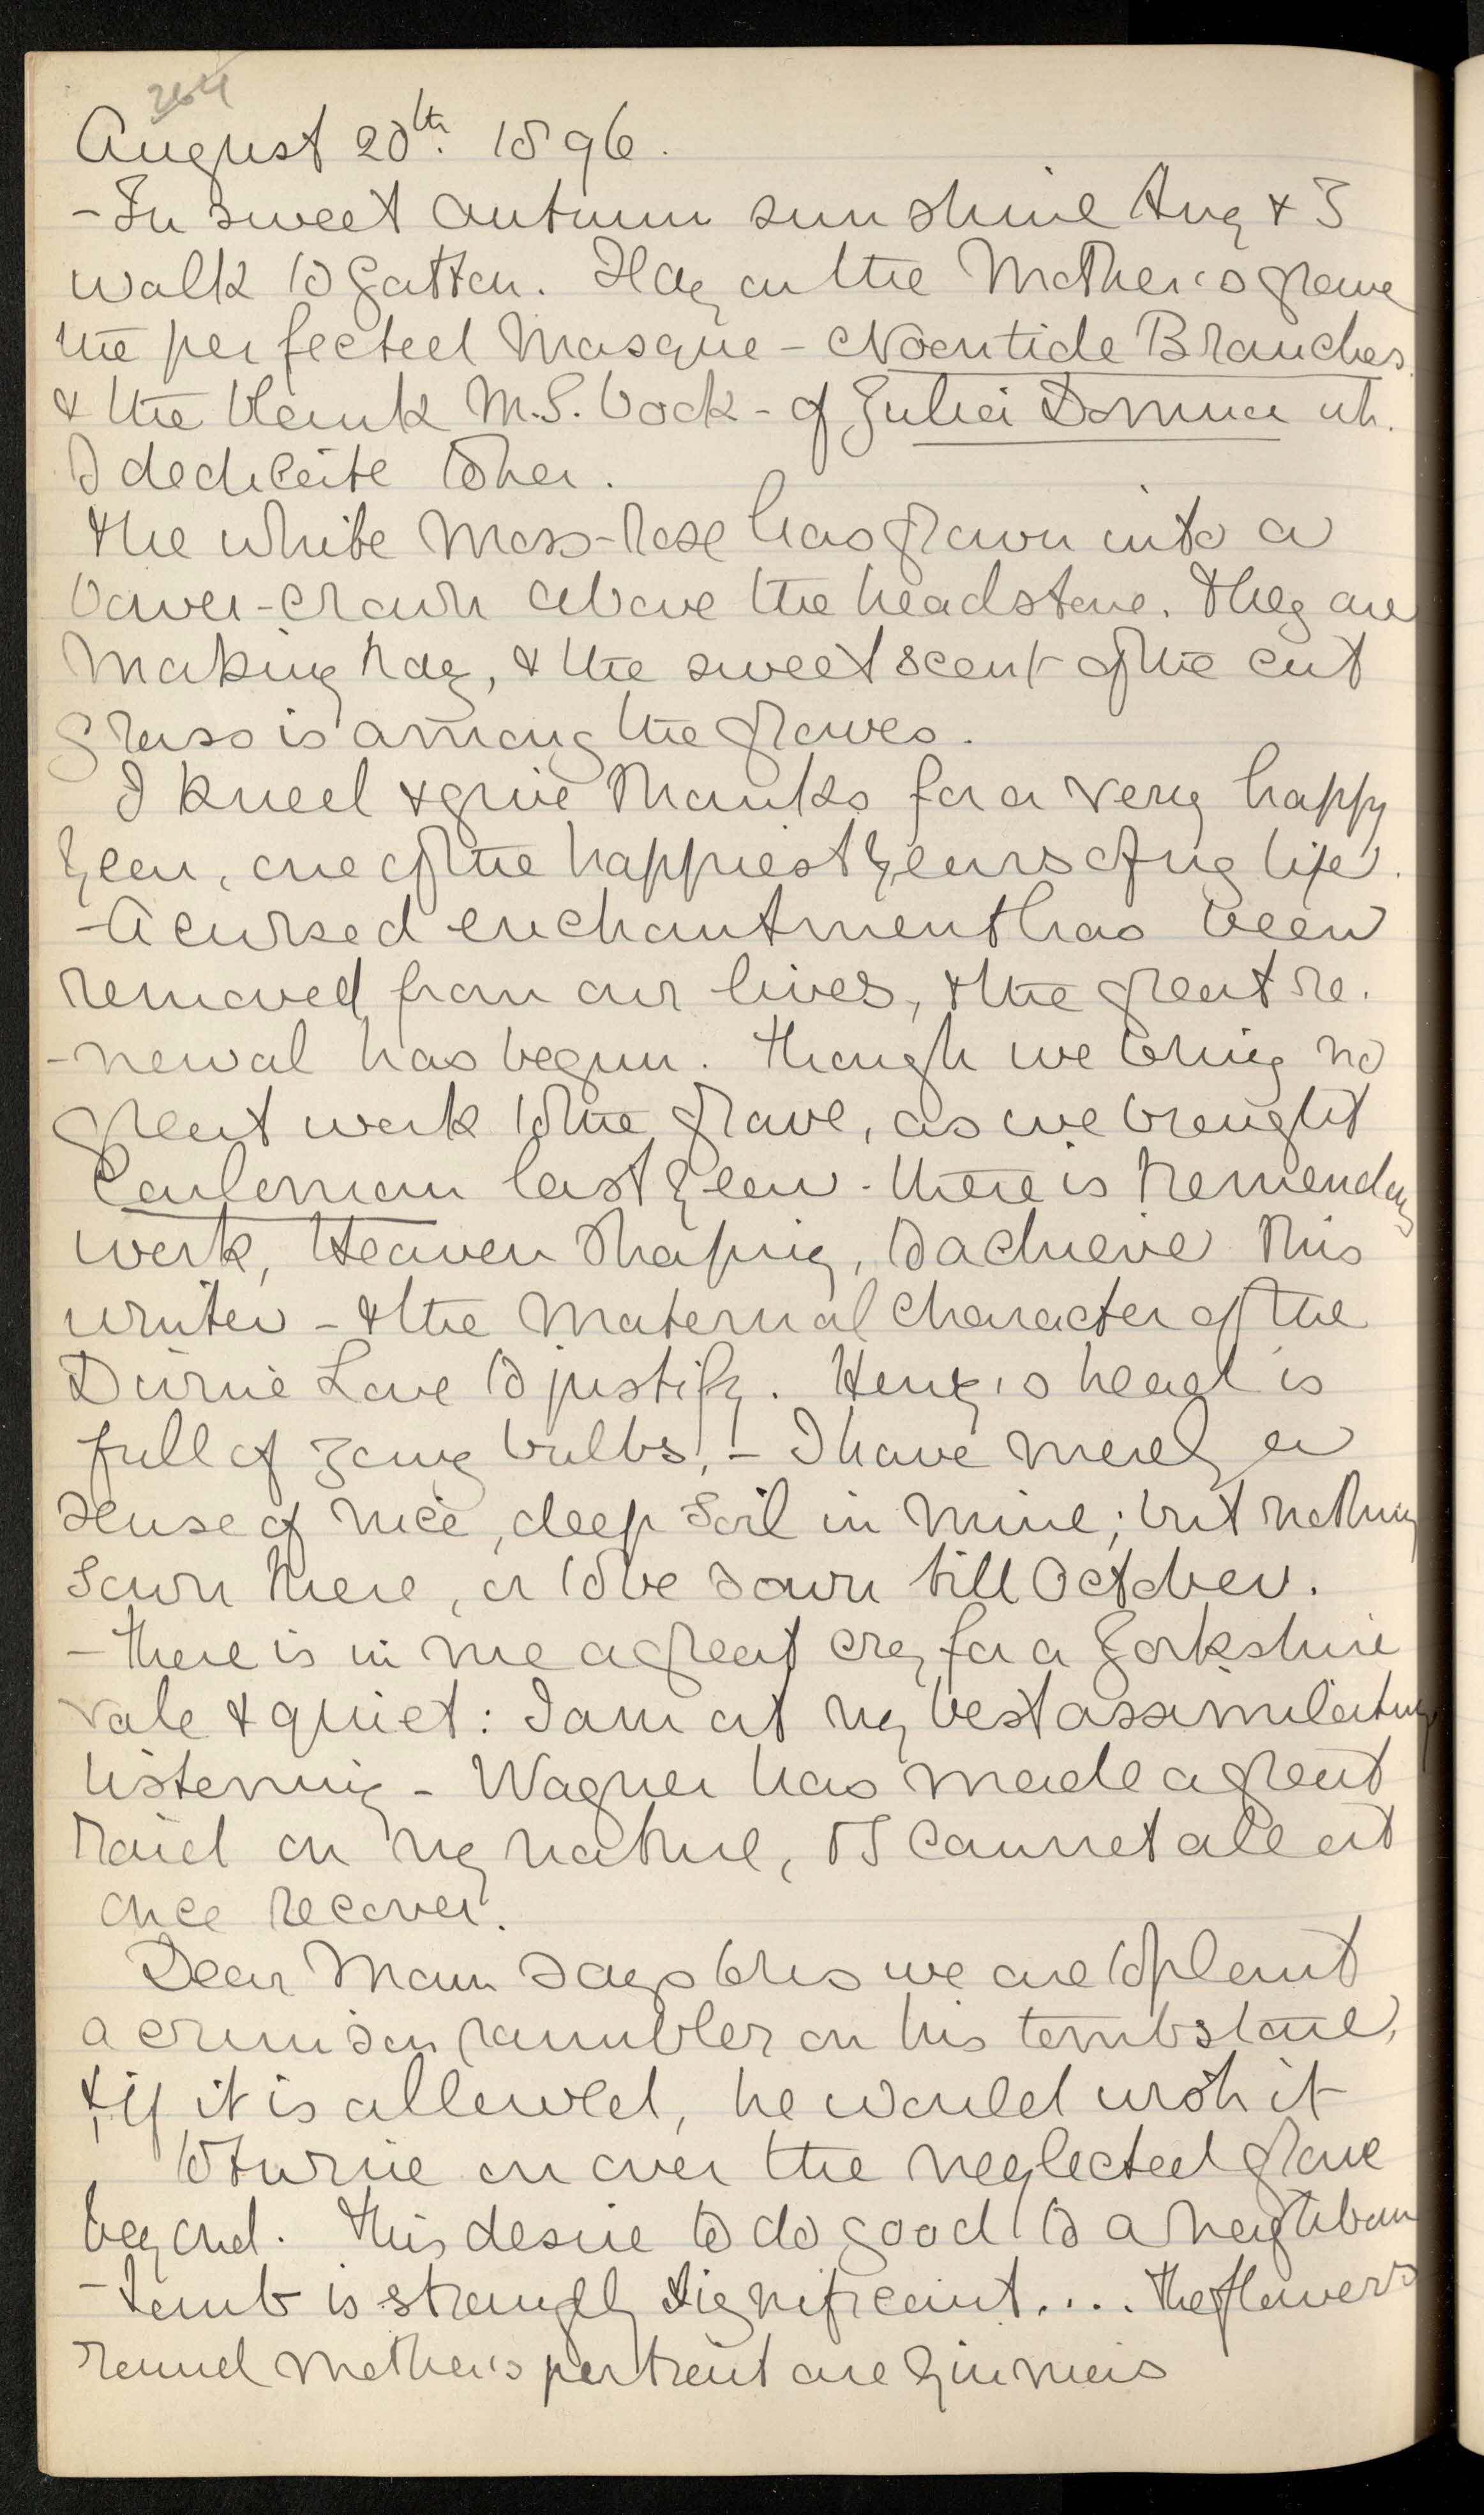 264
August 20th. 1896.
- In sweet autumn sunshine Amy & I
walk to Gatton. I lay on the Mother's grave
the perfected Masque - Noontide Branches.
& the blank M.S. book - of Julia Domna wh.
I dedicate to her.
The white moss-rose has grown into a
bower-crown above the headstone. They are
making hay, & the sweet scent of the cut
grass is among the graves.
I kneel & give thanks for a very happy
year, one of the happiest years of my life.
- A cursed enchantment has been
removed from our lives, & the great re-
-newal has begun. Though we bring no
great work to the grave, as we brought
Carloman last year - there is tremendous
work, Heaven shaping, to achieve this
winter - & the Maternal character of the
Divine Love to justify. Henry's head is
full of young bulbs, - I have merely a
sense of nice, deep soil in mine; but nothing
sown there, or to be sown till October.
- There is in me a great cry for a Yorkshire
vale & quiet: I am at my best assimilating
listening - Wagner has made a great
raid on my nature, & I cannot all at
once recover.
Dear Man says this we are to plant
a crimson rambler on his tombstone,
& if it is allowed, he would wish it
to twine on over the neglected grave
beyond. This desire to do good to a neighbour
-tomb is strangely significant.... The flowers
round Mother's portrait are zinnias